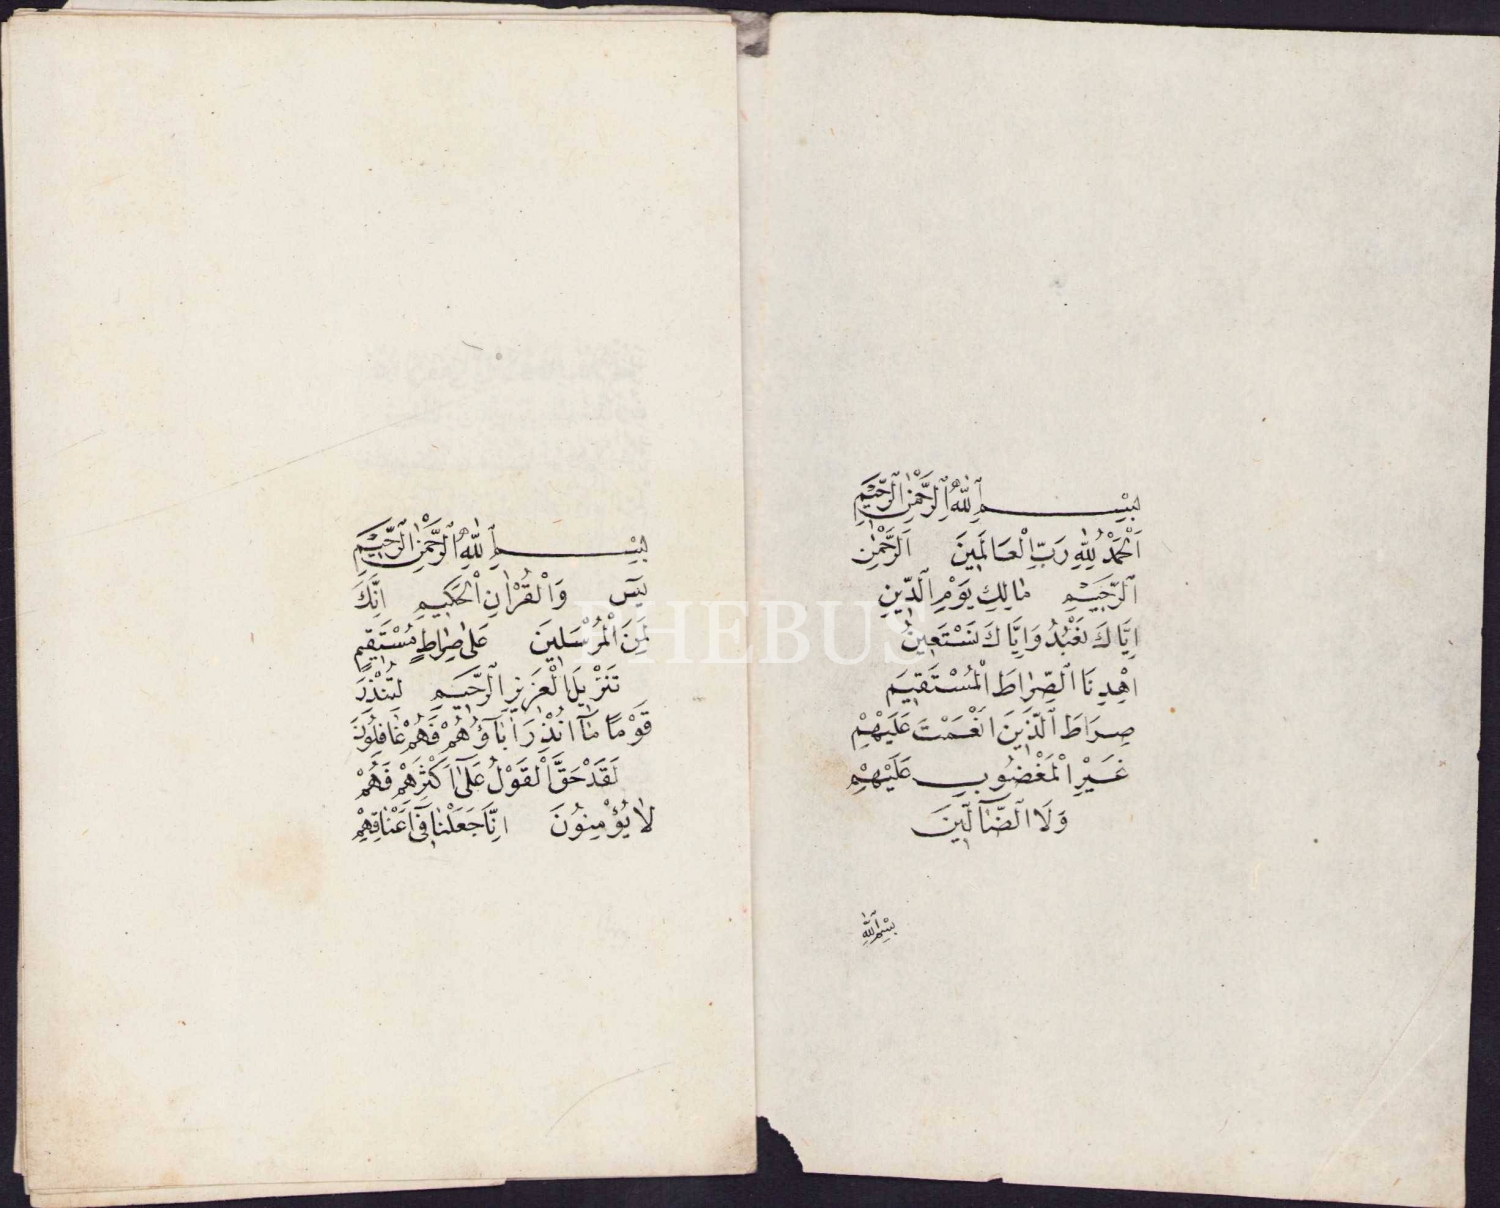 بِسْمِ اللّٰهِ الرَّحْمٰنِ الرَّحِيمِ
اَلْحَمْدُ لِلّٰهِ رَبِّ الْعَالَمِينَ الَرَّحْمٰنِ
الرَّحِيمِ مَالِكِ يَوْمِ الدِّينِ
اِيَّاكَ نَعْبُدُ وَاِيَّاكَ نَسْتَعِينُ
اِهْدِنَا الصِّرَاطَ الْمُسْتَقِيمَ
صِرَاطَ الَّذِينَ اَنْعَمْتَ عَلَيْهِمْ
غَيْرِ الْمَغْضُوبِ عَلَيْهِمْ
وَلَا الضَّآلِّينَ
بِسْمِ اللّٰهِ
بِسْمِ اللّٰهِ الرَّحْمٰنِ الرَّحِيمِ
يٰسٓ وَالْقُرْاٰنِ الْحَكِيمِ اِنَّكَ
لَمِنَ الْمُرْسَلِينَ عَلٰى صِرَاطٍ مُسْتَقِيمٍ
تَنْزِيلَ الْعَزِيزِ الرَّحِيمِ لِتُنْذِرَ
قَوْمًا مَٓا اُنْذِرَ اٰبَٓاؤُ۬هُمْ فَهُمْ غَافِلُونَ
لَقَدْ حَقَّ الْقَوْلُ عَلٰٓى اَكْثَرِهِمْ فَهُمْ
لَا يُؤْمِنُونَ اِنَّا جَعَلْنَا فِٓى اَعْنَاقِهِمْ
PHEBUS